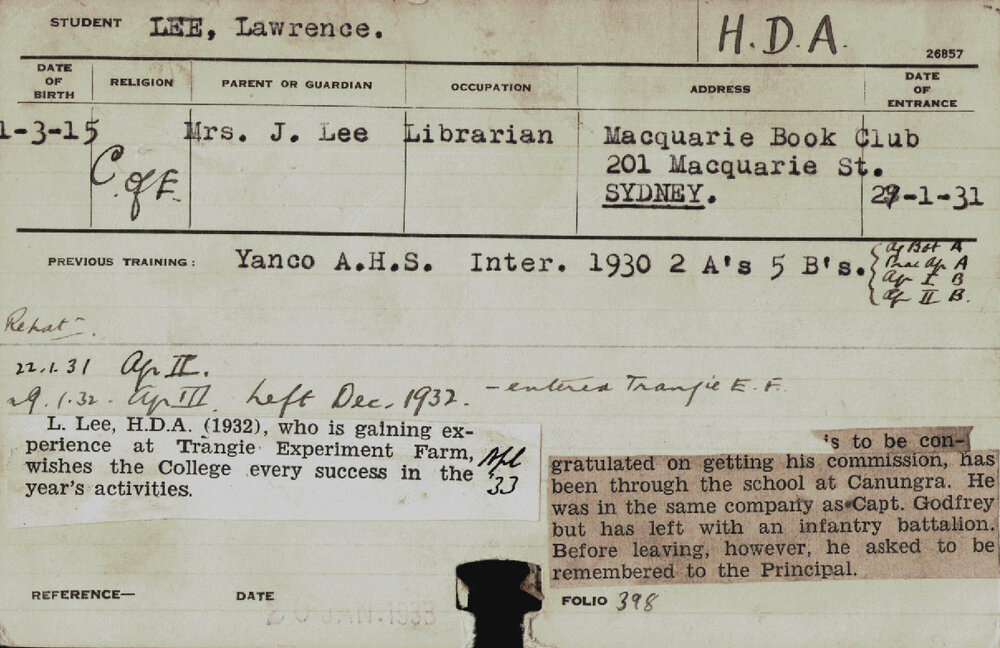 STUDENT LEE, Lawrence. H.D.A. 26857
DATE OF BIRTH RELIGION PARENT OR GUARDIAN OCCUPATION ADDRESS DATE OF ENTRANCE
1-3-15 C. of E. Mrs. J. Lee Librarian Macquarie Book Club
201 Macquarie St.
SYDNEY. 29-1-31
PREVIOUS TRAINING: Yanco A.H.S. Inter. 1930 2 A's 5 B's.
Ag Bot A
Prac Ag A
Ag I B
Ag II B.
22.1.31 Ag II.
29.1.32. Ag III. Left Dec. 1932. - entered Trangie E.F.
L. Lee, H.D.A. (1932), who is gaining ex-
perience at Trangie Experiment Farm,
wishes the College every success in the
year's activities.
Apl
33
's to be con-
gratulated on getting his commission, has
been through the school at Canungra. He
was in the same company as Capt. Godfrey
but has left with an infantry battalion.
Before leaving, however, he asked to be
remembered to the Principal.
REFERENCE— DATE FOLIO 398
JAN. 1933